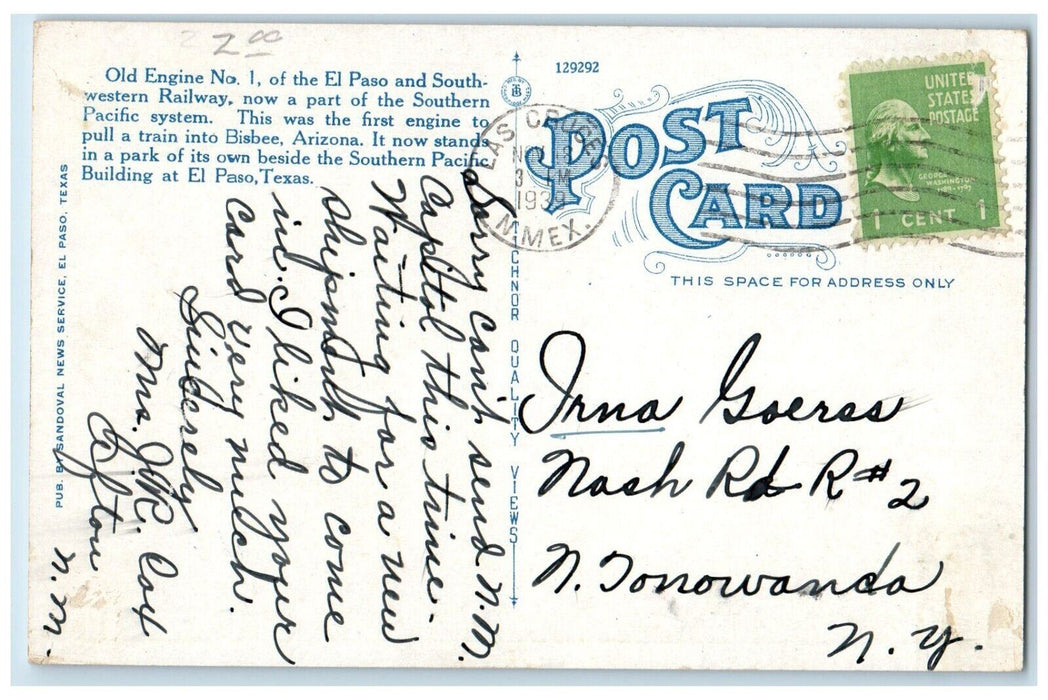 2 00
Old Engine No. 1, of the El Paso and South-
western Railway, now a part of the Southern
Pacific system. This was the first engine to
pull a train into Bisbee, Arizona. It now stands
in a park of its own beside the Southern Pacific
Building at El Paso, Texas.
PUB. BY SANDOVAL NEWS SERVICE, EL PASO, TEXAS
Sorry can't send N.M.
Capitol this time.
Waiting for a new
shipment to come
in. I liked your
card very much.
Sincerely
Mrs. J.R. Cox
Afton
N.M.
129292
POST
CARD
LAS CRUCES
3 PM
193
N.MEX.
UNITED
STATES
POSTAGE
GEORGE
WASHINGTON
1789-1797
1 CENT 1
THIS SPACE FOR ADDRESS ONLY
CHNOR QUALITY VIEWS
Irna Goerss
Nash Rd R#2
N. Tonowanda
N.Y.